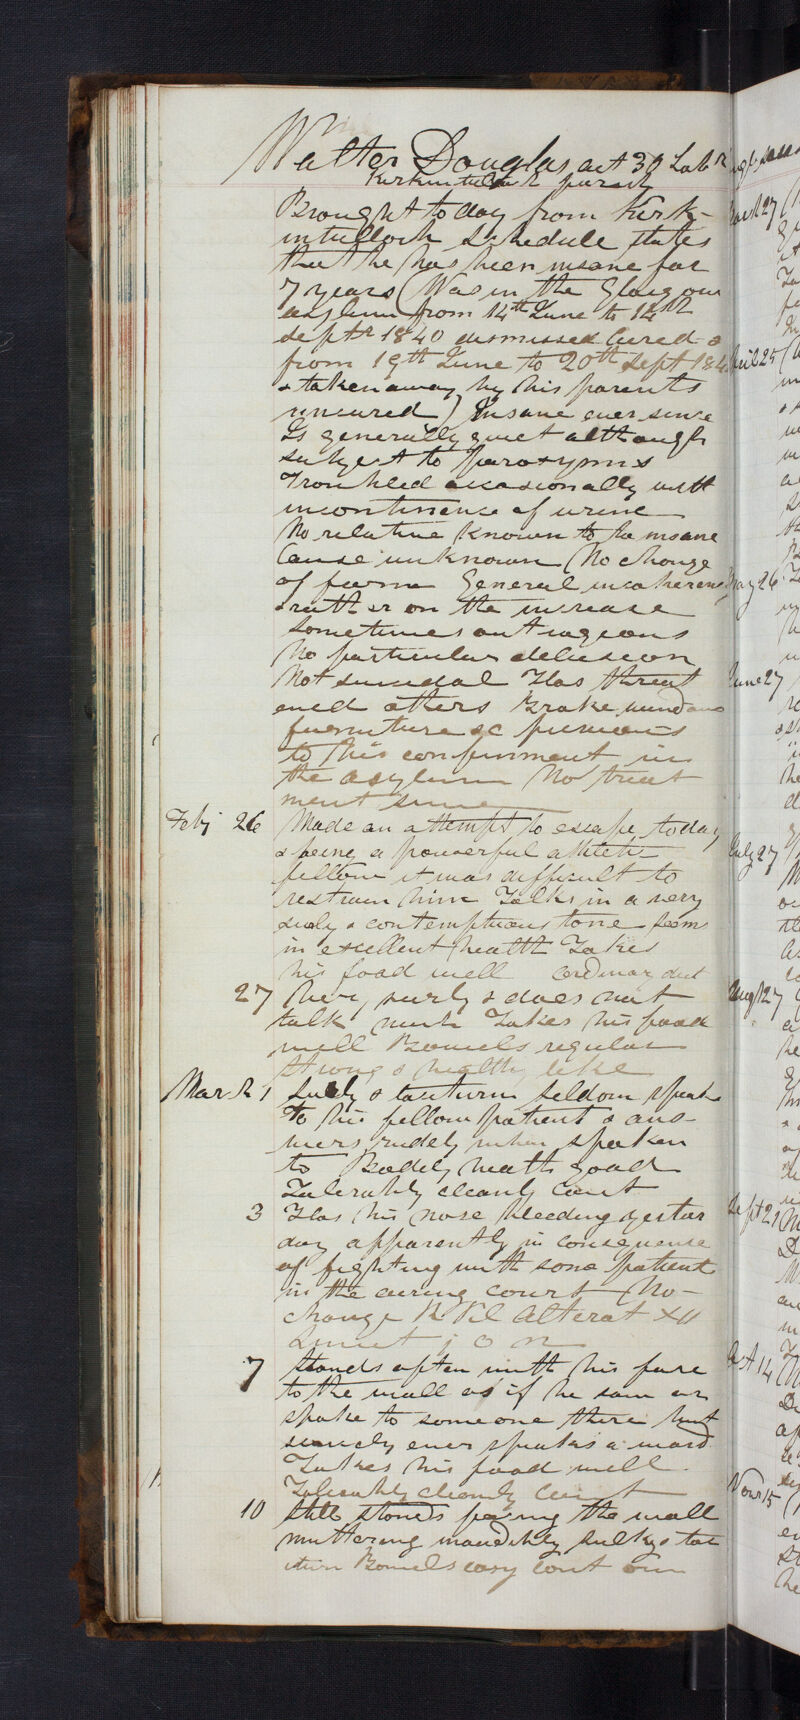 Walter Douglas aet 30 Labr
Kirkintulloch parish
Brought today from Kirk-
intulloch Schedule states
that he has been insane for
7 years (Was in the Glasgow
asylum from 14th June to 14th
septr 1840 dismissed Cured &
from 19th June to 20th Sept 184
& taken away by his parents
uncured) Insane ever since
Is generally quiet although
subject to paroxysms
Troubled occasionally with
incontinence of urine
No relative known to be insane
Cause unknown (No change
of form General incoherence
rather on the increase
sometimes outrageous
No particular delusion
Not suicidal Has threat
ened others Broke windows
furniture &c previous
to his confinement in
the asylum No treat
ment since
Feby 26 Made an attempt to escape today
& being a powerful athletic
fellow it was difficult to
restrain him Talks in a very
surly & contemptuous tone seems
in excellent health Takes
his food well ordinary diet
27 Very surly & does not
talk much Takes his food
well Bowels regular
strong & healthy like
March 1 Sulky & taciturn seldom speaks
to his fellow patients & ans-
wers rudely when spoken
to Bodily health good
Tolerably cleanly Cont
3 Has his nose bleeding yester
day apparently in consequence
of fighting with some patient
in the airing court No
change R Pil Alterat XII
Sumat j o n
7 Stands often with his face
to the wall as if he saw or
spoke to someone there but
scarcely ever speaks a word
Takes his food well
Tolerably cleanly Cont
10 Still stands facing the wall
muttering inaudibly sulky & tac
iturn Bowels easy Cont om
March 27
April 25
May 26
June 27
July 27
Augt 27
Sept 21
Oct 14
Novr 15